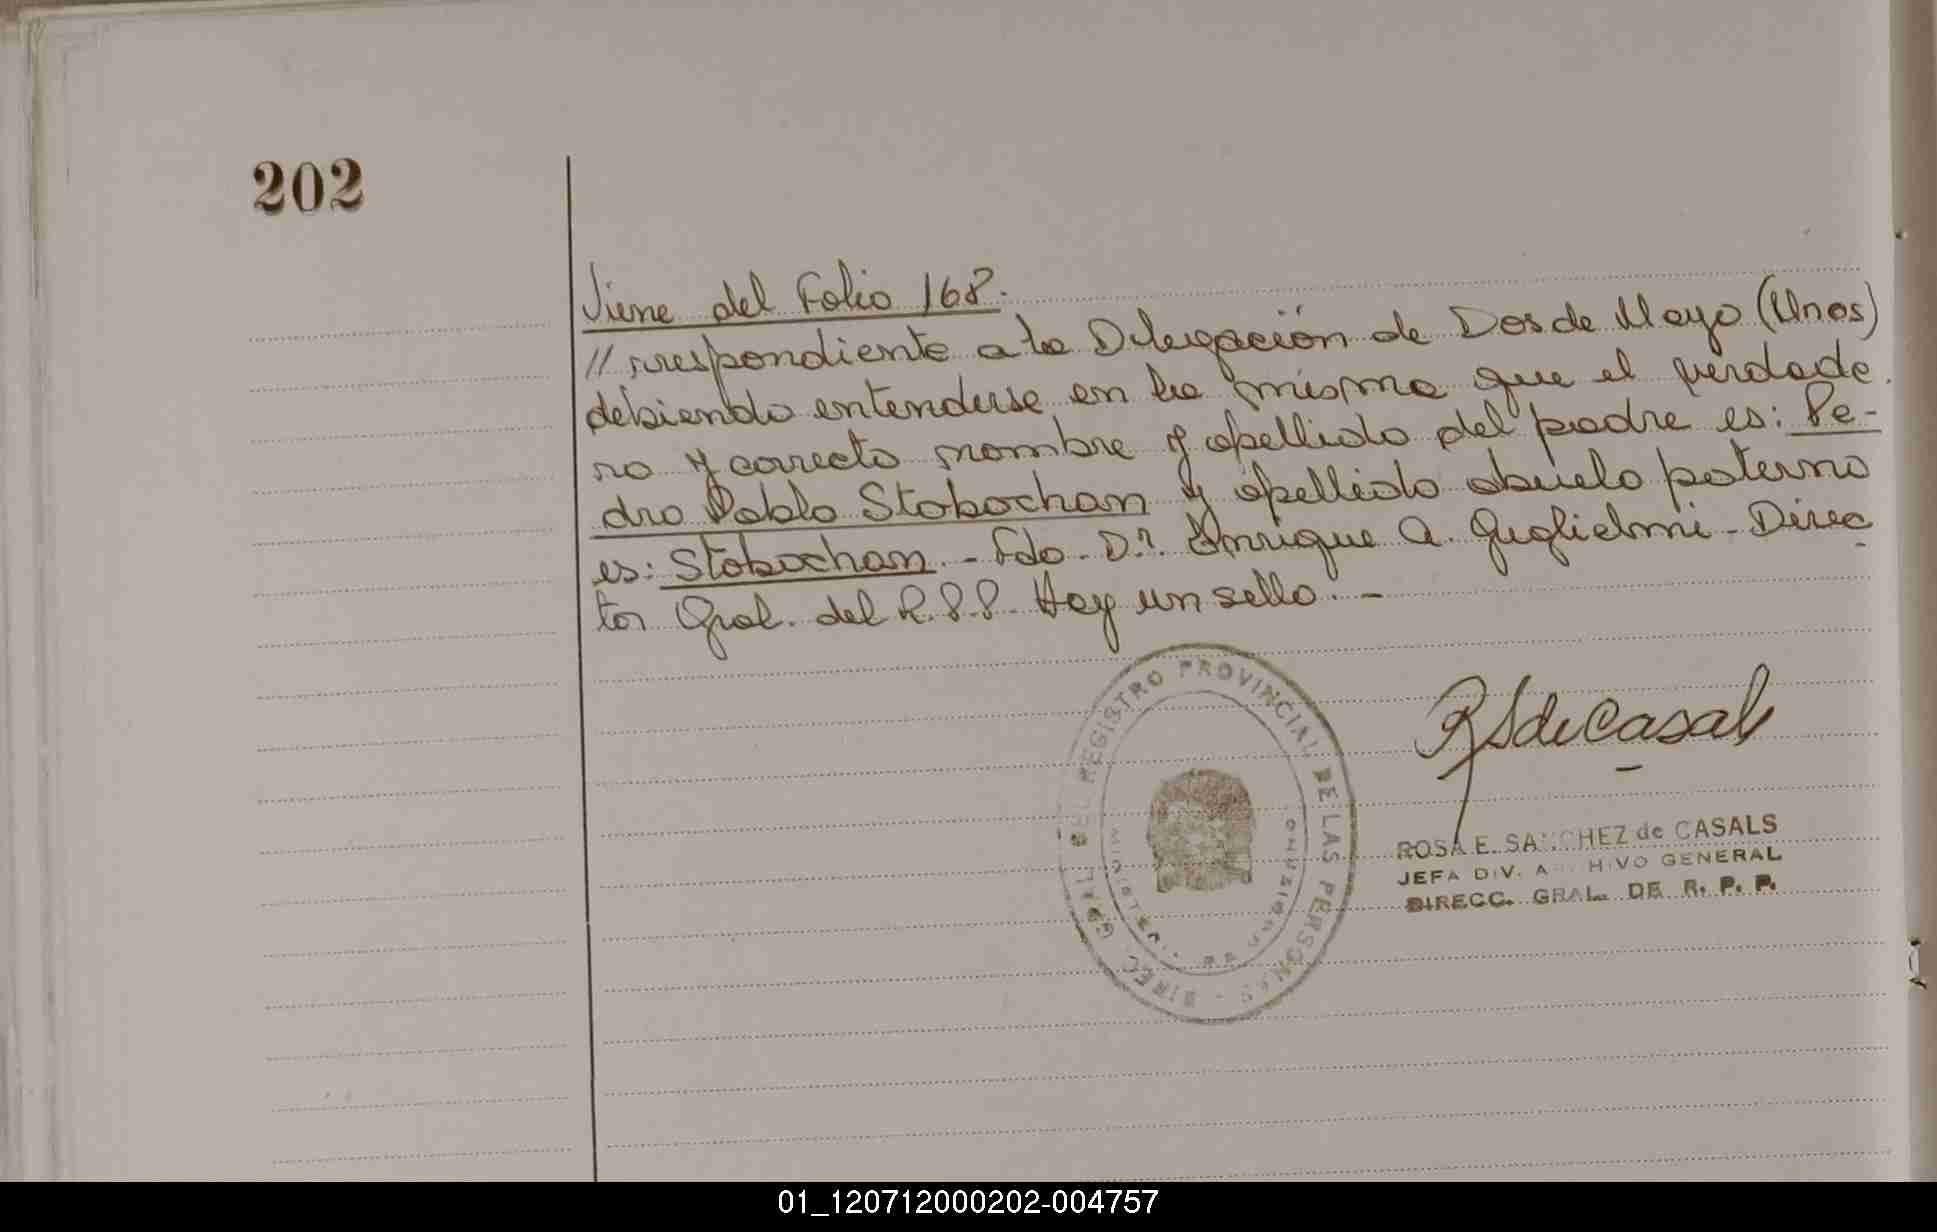 202
Viene del Folio 168.
// rrespondiente a la Delegación de Dos de Mayo (Mnes)
debiendo entenderse en la misma que el verdade
ro y correcto nombre y apellido del padre es: Pe-
dro Pablo Stobochan y apellido abuelo paterno
es: Stobochan. - Fdo. Dr. Enrique A. Guglielmi - Direc
tor Gral. del R.P.P. Hay un sello. -
DIREC. GRAL. DEL REGISTRO PROVINCIAL DE LAS PERSONAS
MINISTER
RSdeCasals
ROSA E. SANCHEZ de CASALS
JEFA DIV. ARCHIVO GENERAL
DIRECC. GRAL. DE R. P. P.
01_120712000202-004757